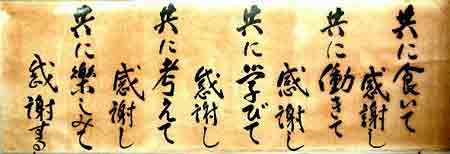 共に食いて
感謝し
共に働きて
感謝し
共に学びて
感謝し
共に考えて
感謝し
共に楽しみて
感謝する